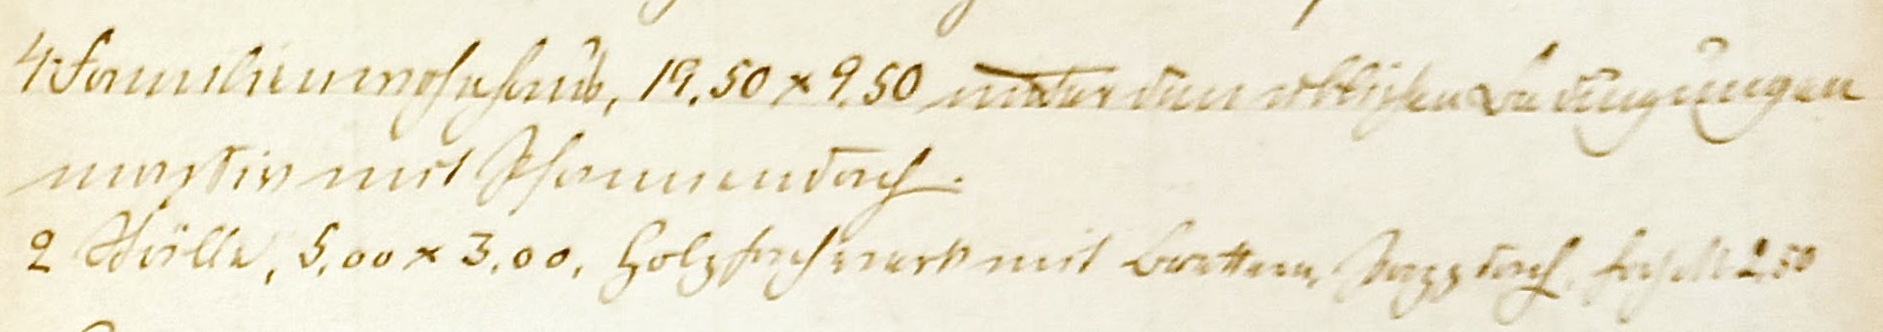 4. Familienwohnhaus, 19.50 x 9.50 unter den üblichen Bedingungen
massiv mit Pfannendach.
2 Ställe, 5.00 x 3.00, Holzfachwerk mit Brettern, Pappdach, 2.50